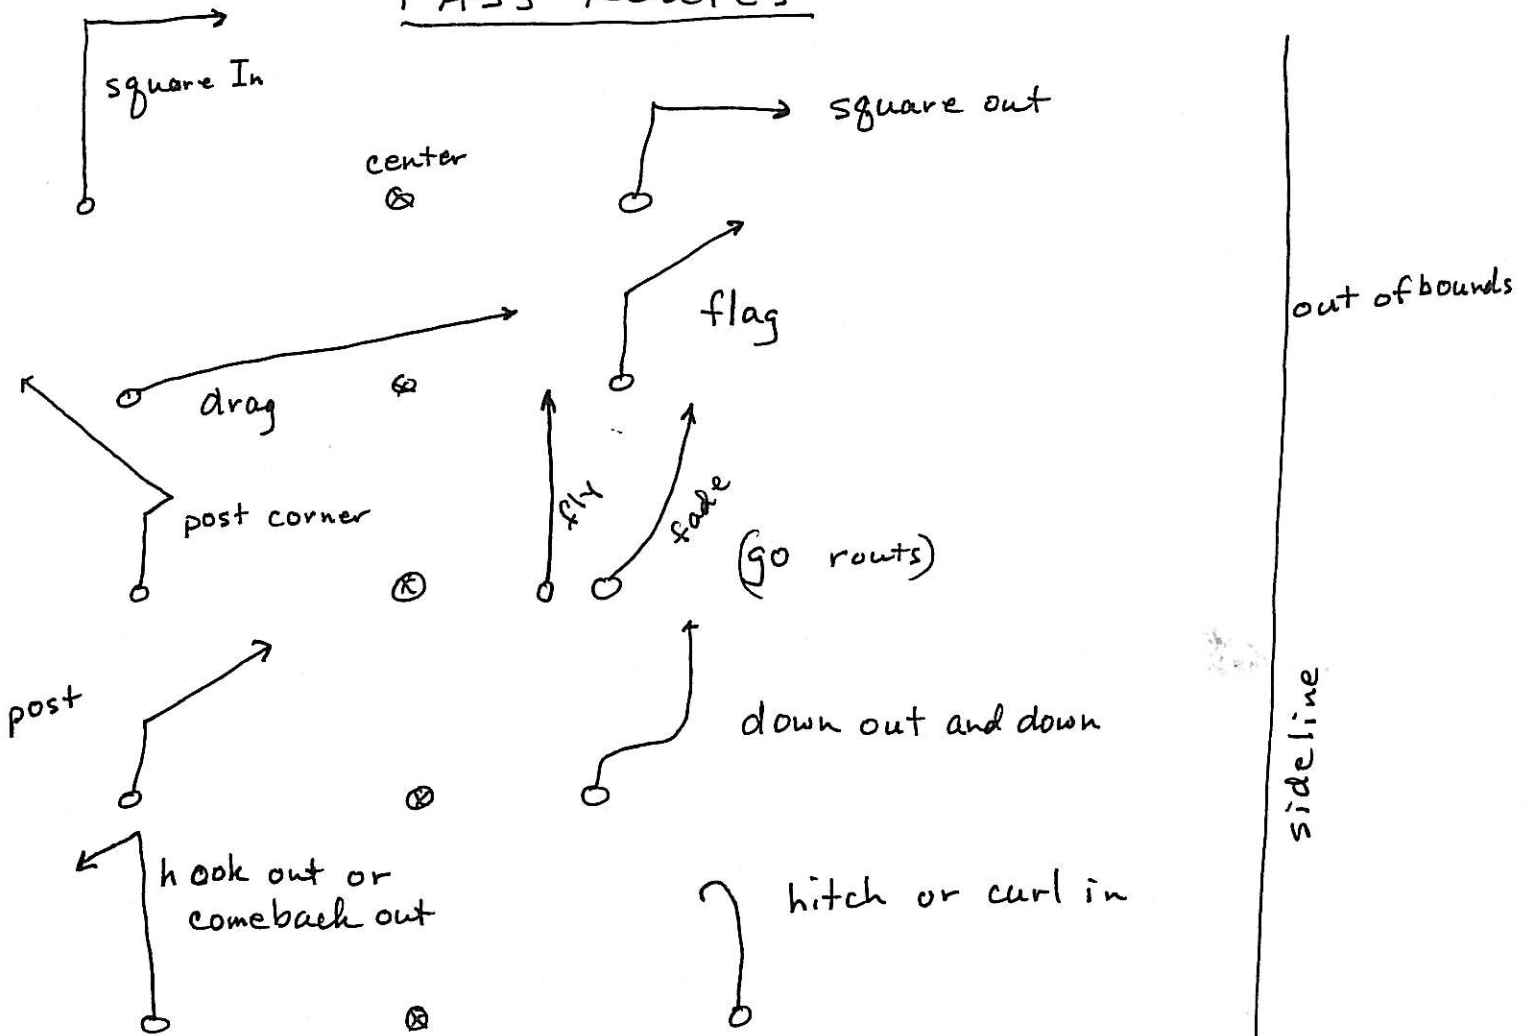 PASS ROUTES
square In
square out
center
flag
out of bounds
drag
post corner
fly
fade
(go routs)
post
down out and down
sideline
hook out or
comeback out
hitch or curl in